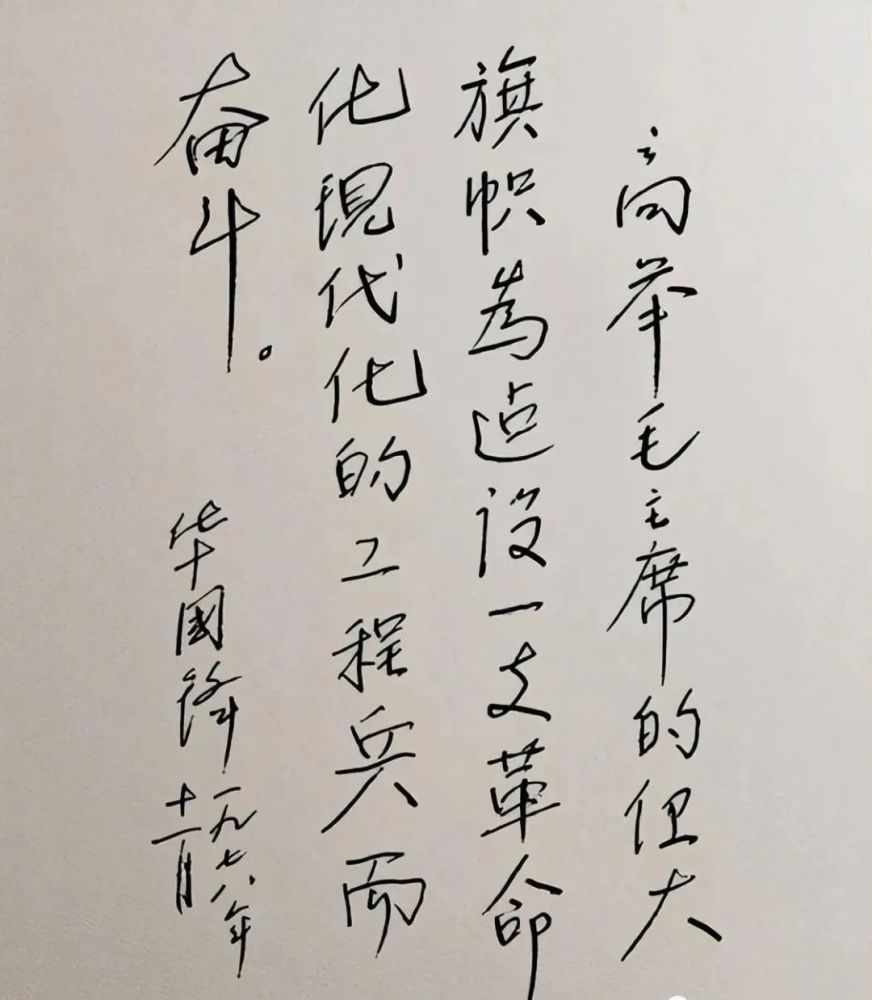 高举毛主席的伟大
旗帜为建设一支革命
化現代化的工程兵而
奋斗。
华國锋
一九七八年
十一月